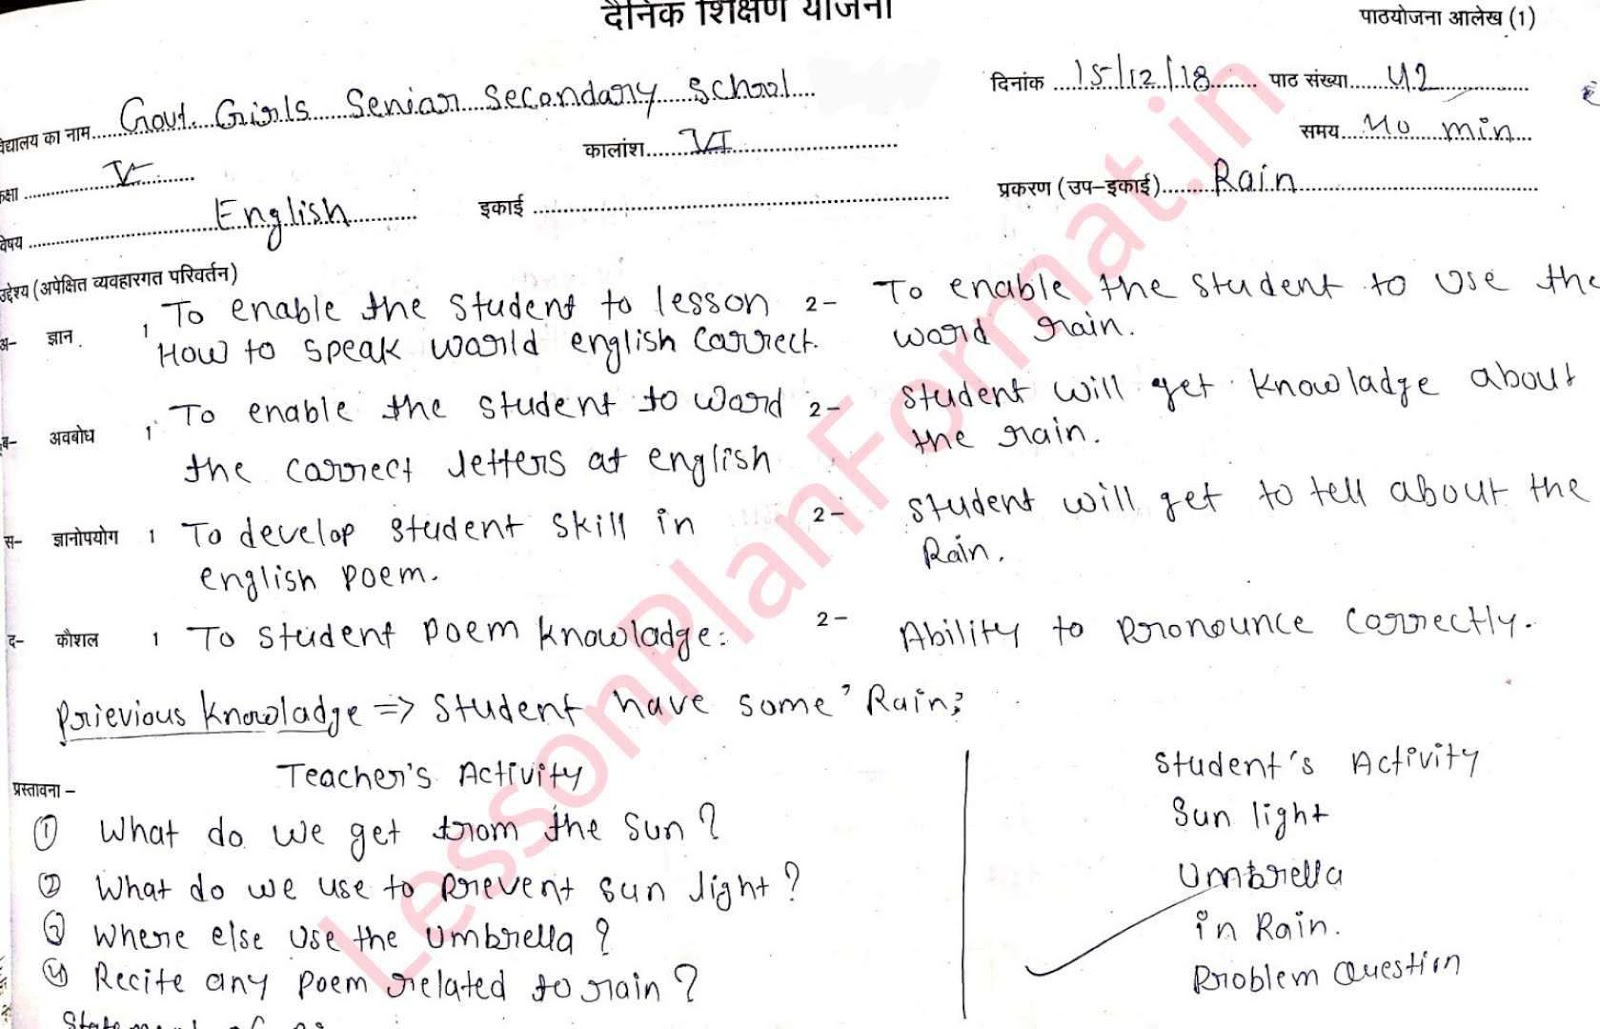 दैनिक शिक्षण योजना
पाठयोजना आलेख (1)
विद्यालय का नाम Govt. Girls Senior Secondary School दिनांक 15/12/18 पाठ संख्या 42
कक्षा V कालांश VI समय 40 min
विषय English इकाई प्रकरण (उप-इकाई) Rain
उद्देश्य (अपेक्षित व्यवहारगत परिवर्तन)
अ- ज्ञान 1 To enable the student to lesson 2- To enable the student to use the
How to speak warld english correct. word rain.
ब- अवबोध 1 To enable the student to word 2- student will get knowladge about
the correct letters at english the rain.
स- ज्ञानोपयोग 1 To develop student skill in 2- student will get to tell about the
english poem. Rain.
द- कौशल 1 To student poem knowladge. 2- Ability to pronounce correctly.
Prievious knowladge => Student have some 'Rain;
प्रस्तावना - Teacher's Activity Student's Activity
① What do we get from the sun? Sun light
② What do we use to prevent sun light? Umbrella
③ Where else use the umbrella? in Rain.
④ Recite any poem related to rain? Problem Question
LessonPlanFormat.in